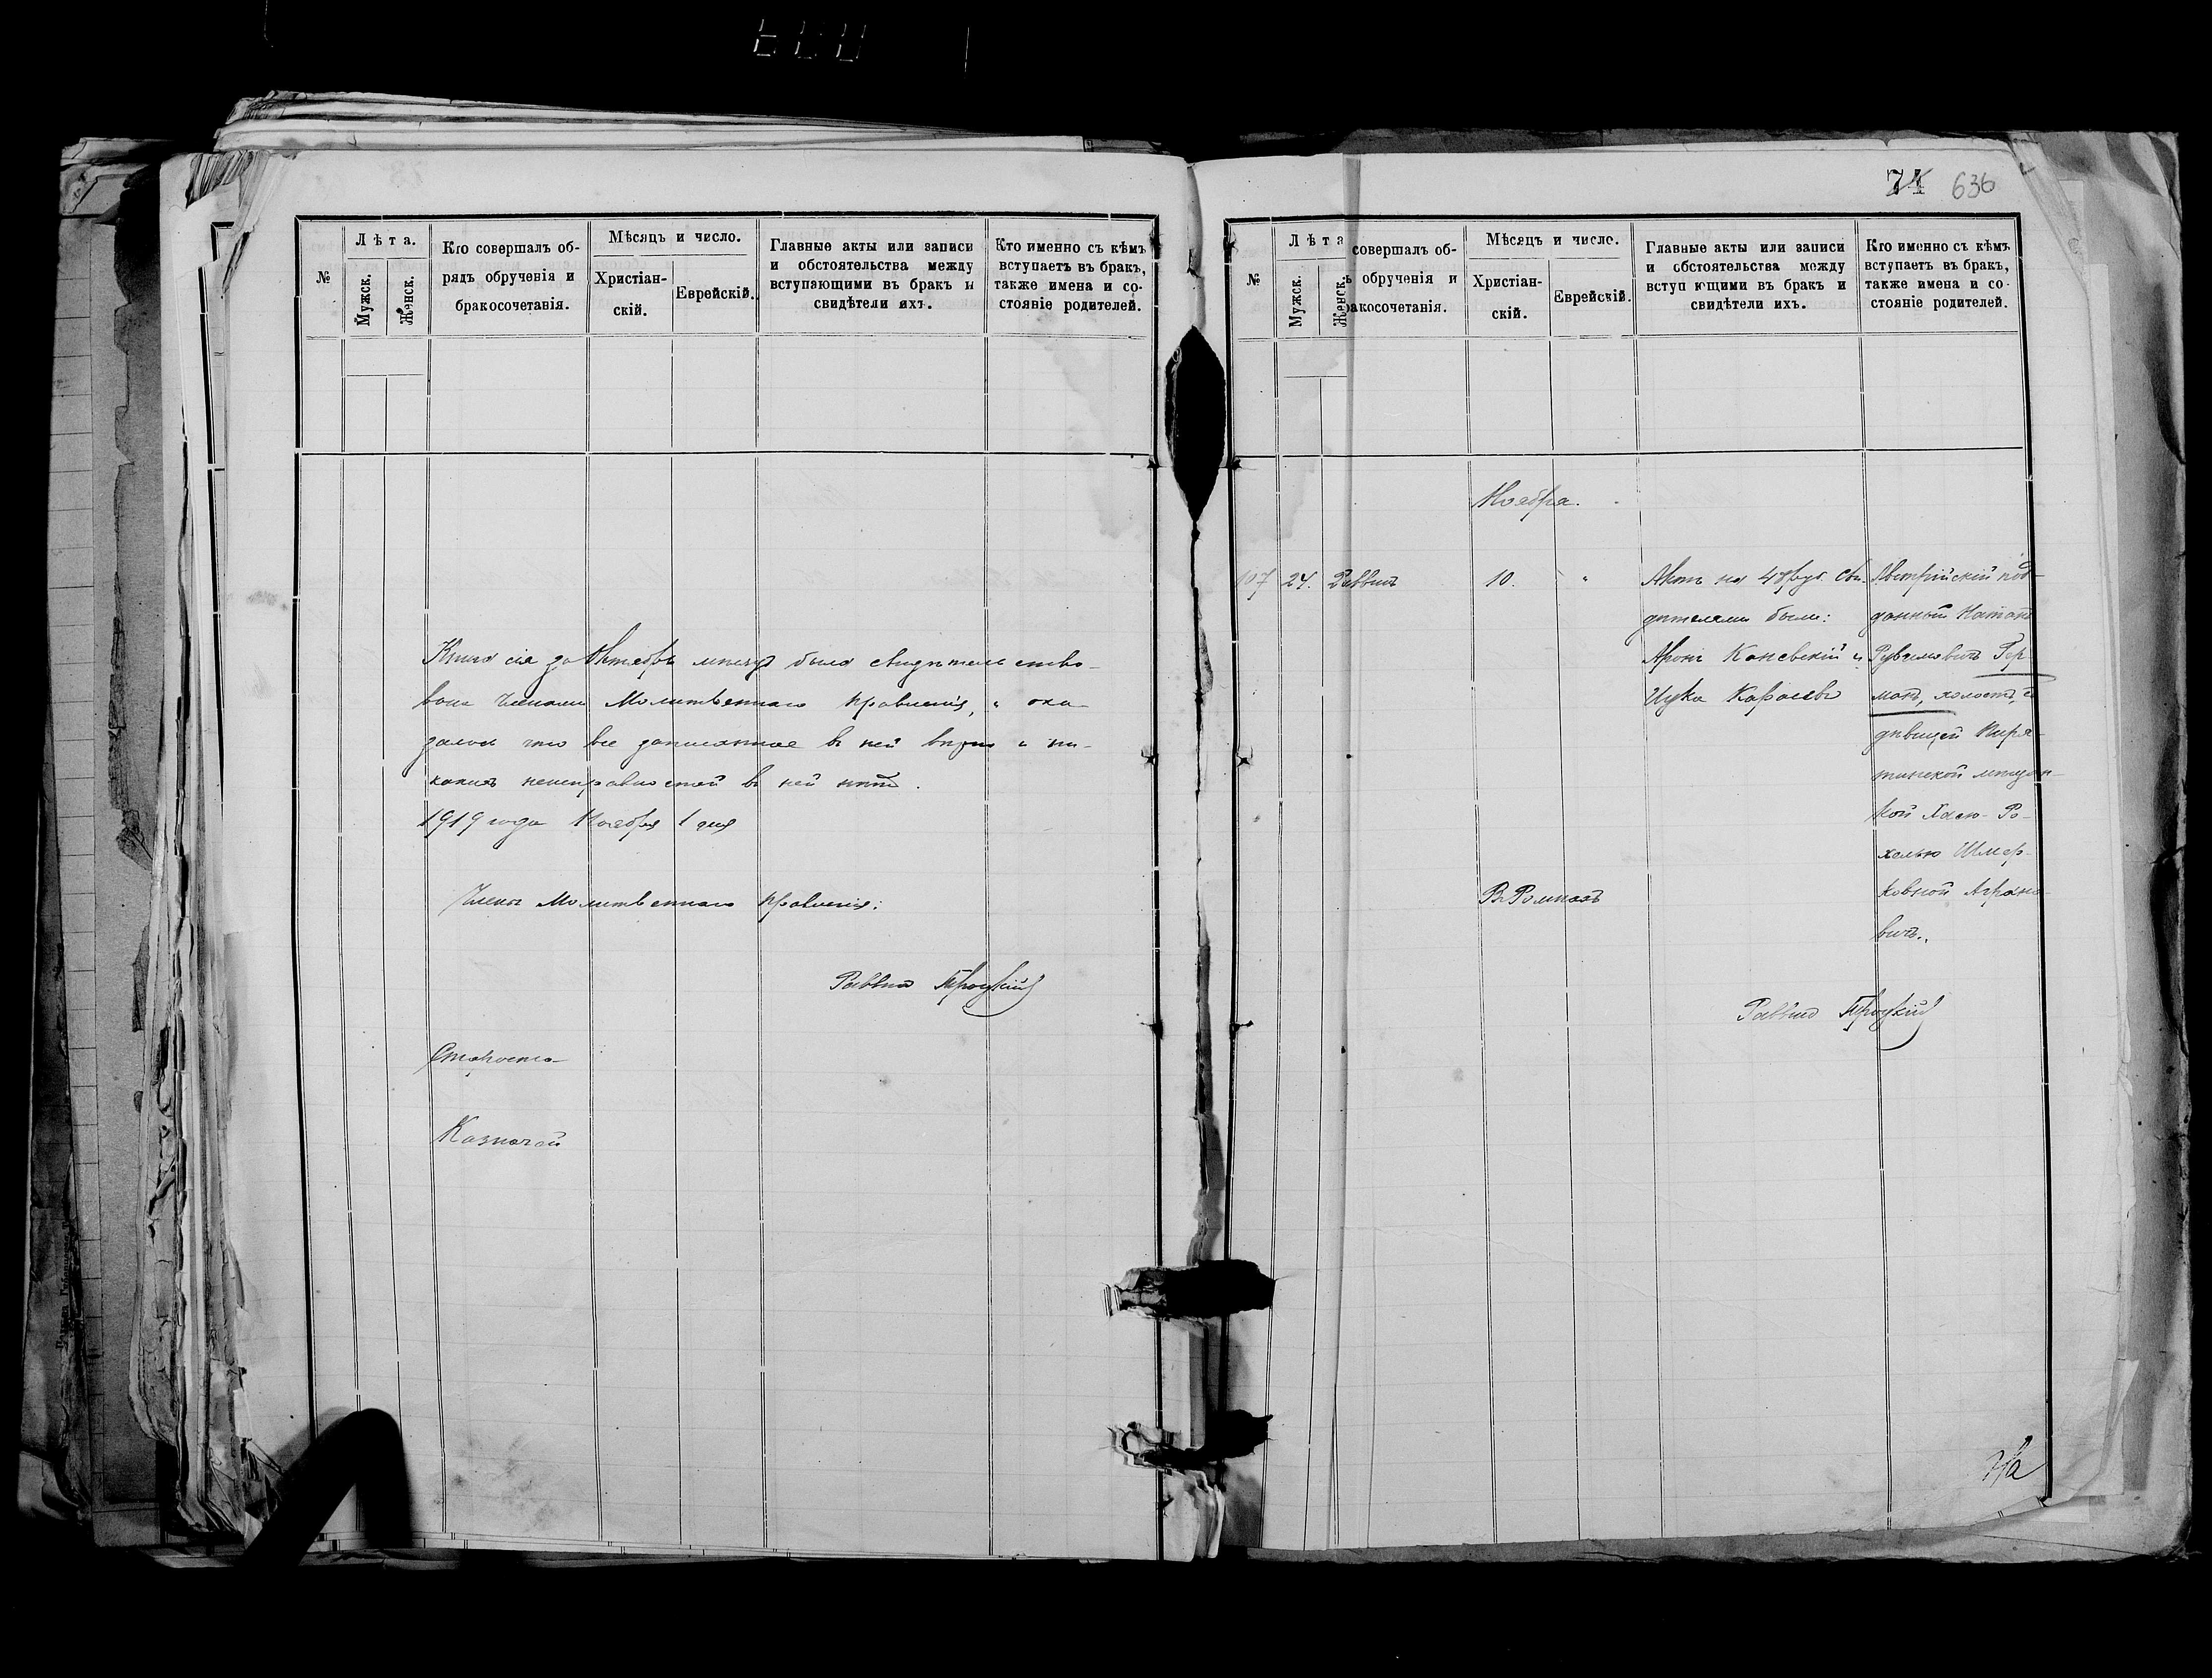 №
Лѣта.
Мужск.
Женск.
Кто совершалъ об-
рядъ обрученія и
бракосочетанія.
Мѣсяцъ и число.
Христіан-
скій.
Еврейскій.
Главные акты или записи
и обстоятельства между
вступающими въ бракъ и
свидѣтели ихъ.
Кто именно съ кѣмъ
вступаетъ въ бракъ,
также имена и со-
стояніе родителей.
Книга сія за Октябрь мѣсяцъ была свидѣтельство-
вана Членами Молитвеннаго Правленія, и ока-
залось что все записанное въ ней вѣрно и ни-
какихъ неисправностей въ ней нѣтъ.
1919 года Ноября 1 дня
Члены Молитвеннаго Правленія:
Раввинъ Троцкій
Староста
Казначей
74 636
№
Лѣта
Мужск.
Женск.
совершалъ об-
ь обрученія и
ракосочетанія.
Мѣсяцъ и число.
Христіан-
скій.
Еврейскій.
Главные акты или записи
и обстоятельства между
вступ ющими въ бракъ и
свидѣтели ихъ.
Кто именно съ кѣмъ
вступаетъ въ бракъ,
также имена и со-
стояніе родителей.
Ноября.
107 24. Раввинъ 10. "
Актъ на 48 руб. Сви-
дѣтелями были:
Аронъ Каневскій и
Ицка
Австрійскій под-
данный Натанъ
Рувимовичъ Гер-
манъ, холостъ, съ
дѣвицей Пиря-
тинской мѣщан-
кой Хаею-Ро-
халью Шмер-
ковной Аграно-
вичъ.
Въ Ромнахъ
Раввинъ Троцкій